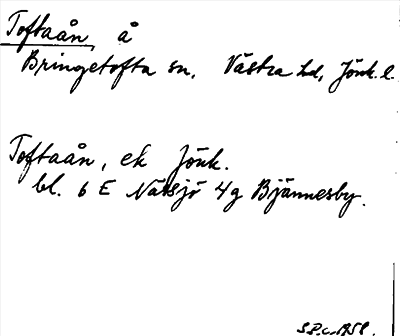 Toftaån, å
Bringetofta sn. Västra hd, Jönk. l.
Toftaån, ek Jönk.
bl. 6 E Nässjö 4g Bjännesby.
S.P.c. 1958.